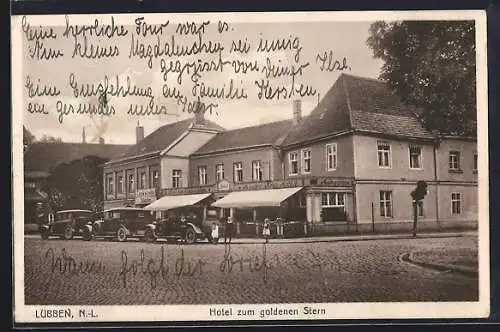 Eine herrliche Tour war es.
Mein kleines Magdalenchen sei innig
gegrüsst von deiner Ilse.
Eine Empfehlung an Familie
ein gesundes neues Jahr
Wann folgt der Brief?
LÜBBEN, N.-L.
Hotel zum goldenen Stern